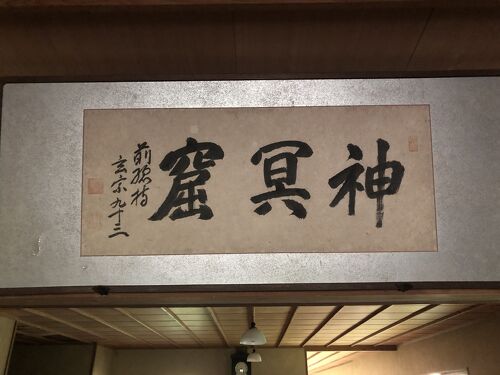 神冥窟
前總持
玄宗九十三